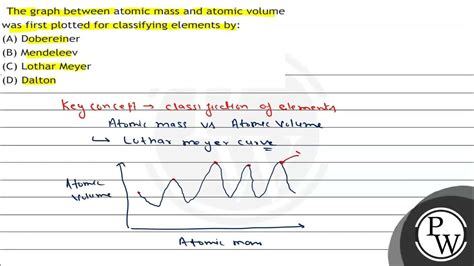 The graph between atomic mass and atomic volume
was first plotted for classifying elements by:
(A) Dobereiner
(B) Mendeleev
(C) Lothar Meyer
(D) Dalton
Key concept → classification of elements
Atomic mass vs Atomic Volume
↳ Lothar meyer curve
Atomic
Volume
Atomic mass
P
W